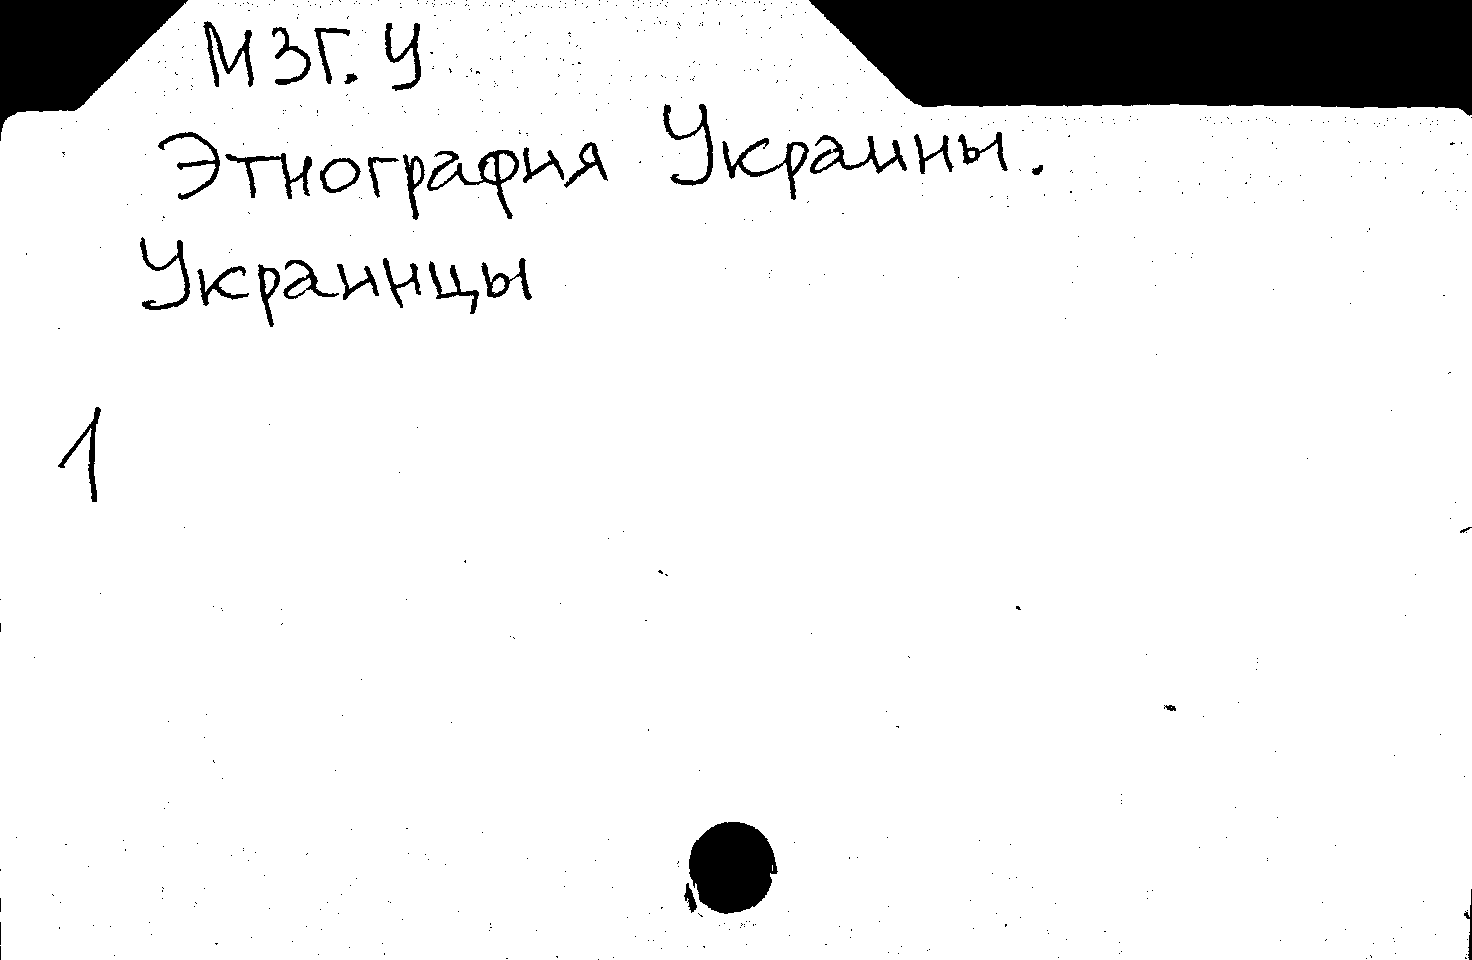 МЗГ. У
Этнография Украины.
Украинцы
1